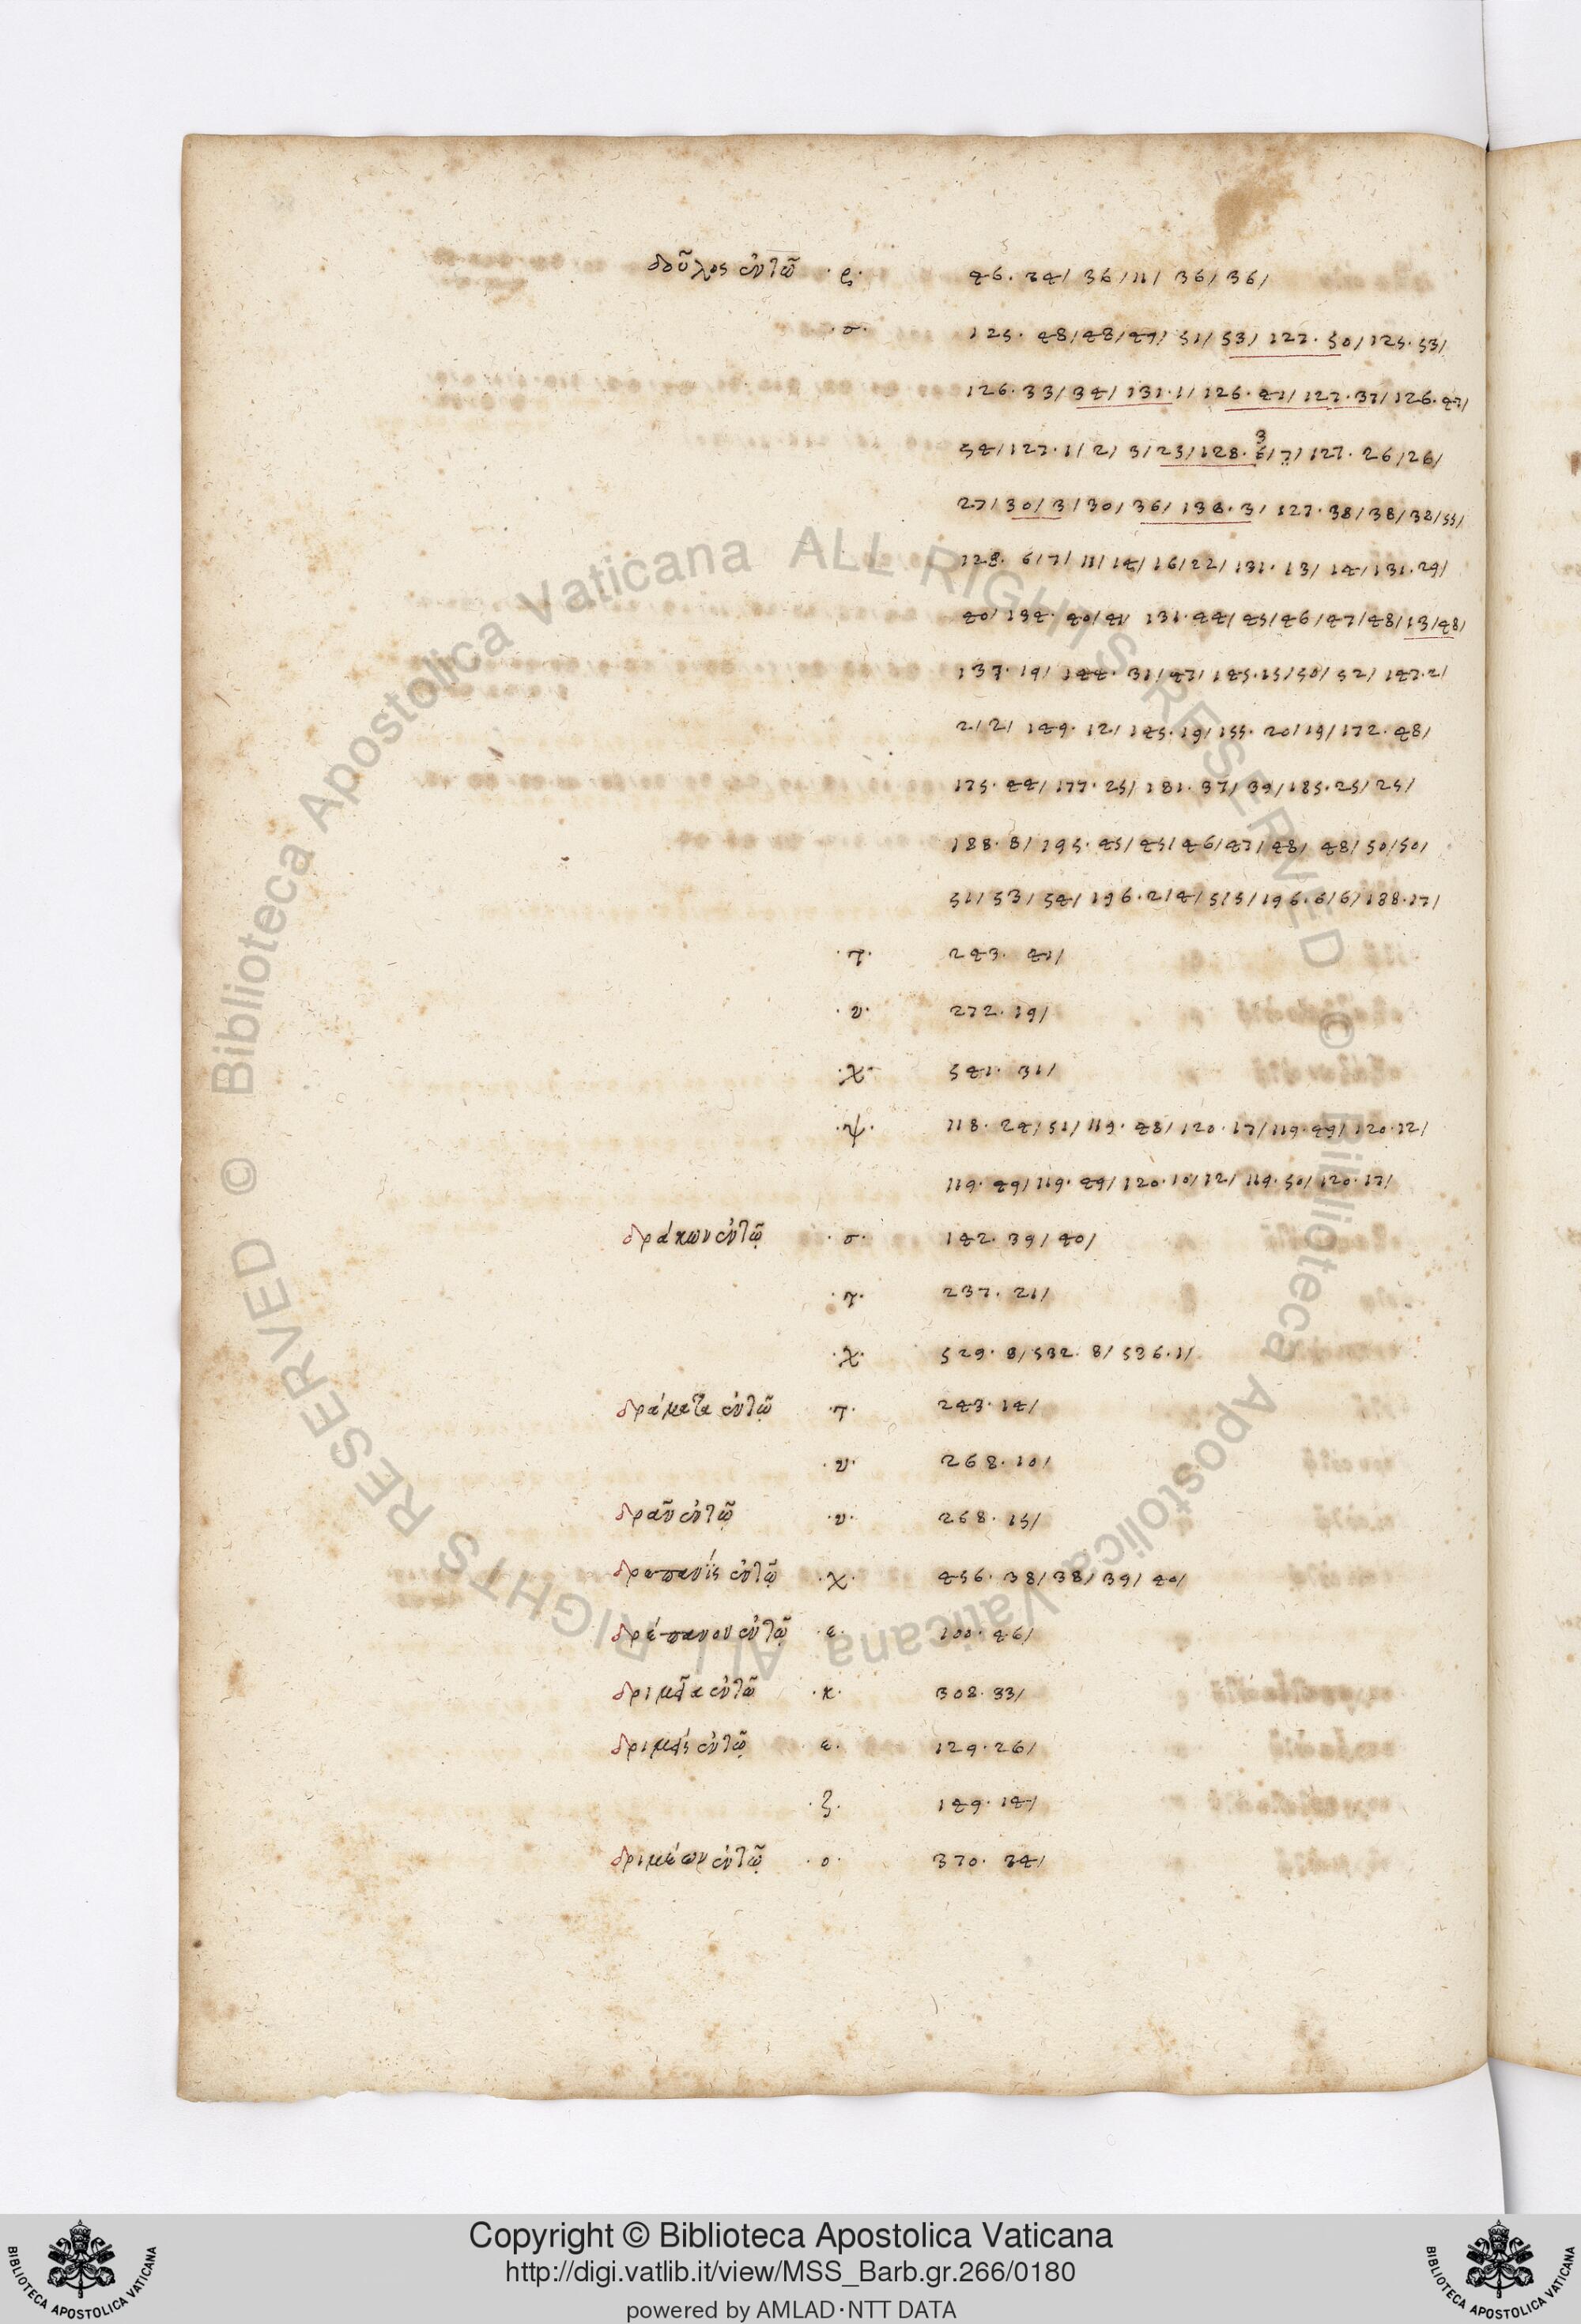 δοῦλος ἐν τῷ ·ς· 46. 34/ 36/11/ 36/36/
·σ· 125. 48/48/47/ 51/53/ 127. 50/125.53/
126.33/34/131.1/126.41/127.37/126.47/
54/127.1/2/3/23/128.6/7/127.26/26/
3
27/30/3/30/36/136.3/127.38/38/38/55/
128. 6/7/11/14/16/22/131.13/14/131.29/
40/134.40/41/131.44/45/46/47/48/13/48/
137.19/144.31/47/145.15/50/52/147.2/
2/2/149.12/145.19/155.20/19/172.48/
175.44/177.25/181.37/39/185.25/25/
188.8/195.45/45/46/47/48/48/50/50/
51/53/54/196.2/4/5/5/196.6/6/188.17/
·τ· 243. 41/
·υ· 272.19/
·χ· 541. 31/
·ψ· 118. 24/51/119.48/120.17/119.49/120.12/
119.49/119.49/120.10/12/119.50/120.17/
δράκων ἐν τῷ ·σ· 142. 39/40/
·τ· 237. 21/
·χ· 529. 8/532. 8/536.1/
δράματα ἐν τῷ ·τ· 243.14/
·υ· 268.10/
δρᾶν ἐν τῷ ·υ· 268. 15/
δρεπανὶς ἐν τῷ ·χ· 456.38/38/39/40/
δρέπανον ἐν τῷ ·ε· 100.46/
ἐν τῷ ·κ· 308.33/
ἐν τῷ ε· 129.26/
·ζ· 149.14/
δριμέων ἐν τῷ ·ο· 370. 34/
Copyright © Biblioteca Apostolica Vaticana
http://digi.vatlib.it/view/MSS_Barb.gr.266/0180
powered by AMLAD·NTT DATA
BIBLIOTECA APOSTOLICA VATICANA
BIBLIOTECA APOSTOLICA VATICANA
© Biblioteca Apostolica Vaticana ALL RIGHTS RESERVED
© Biblioteca Apostolica Vaticana ALL RIGHTS RESERVED